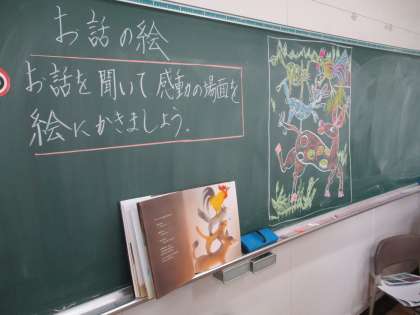 お話の絵
お話を聞いて感動の場面を
絵にかきましょう。